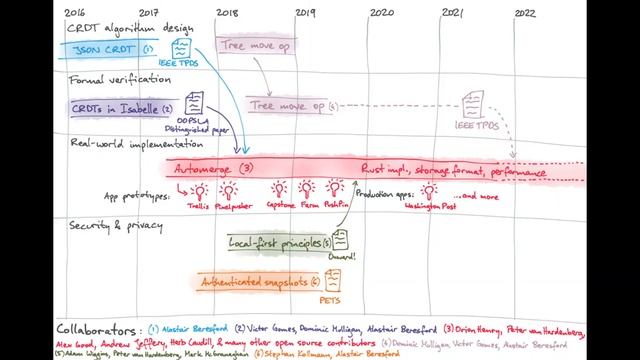 2016 2017 2018 2019 2020 2021 2022
CRDT algorithm design
JSON CRDT (1)
IEEE TPDS
Tree move op
Formal verification
CRDTs in Isabelle (2)
OOPSLA
Distinguished paper
Tree move op (4)
IEEE TPDS
Real-world implementation
Automerge (3)
Rust impl., storage format, performance
App prototypes:
Trellis
Pixelpusher
Capstone
Farm
PushPin
Production apps:
Washington Post
...and more
Security & privacy
Local-first principles (5)
Onward!
Authenticated snapshots (6)
PETS
Collaborators: (1) Alastair Beresford (2) Victor Gomes, Dominic Mulligan, Alastair Beresford (3) Orion Henry, Peter van Hardenberg,
Alex Good, Andrew Jeffery, Herb Caudill, & many other open source contributors (4) Dominic Mulligan, Victor Gomes, Alastair Beresford
(5) Adam Wiggins, Peter van Hardenberg, Mark McGranaghan (6) Stephan Kollmann, Alastair Beresford